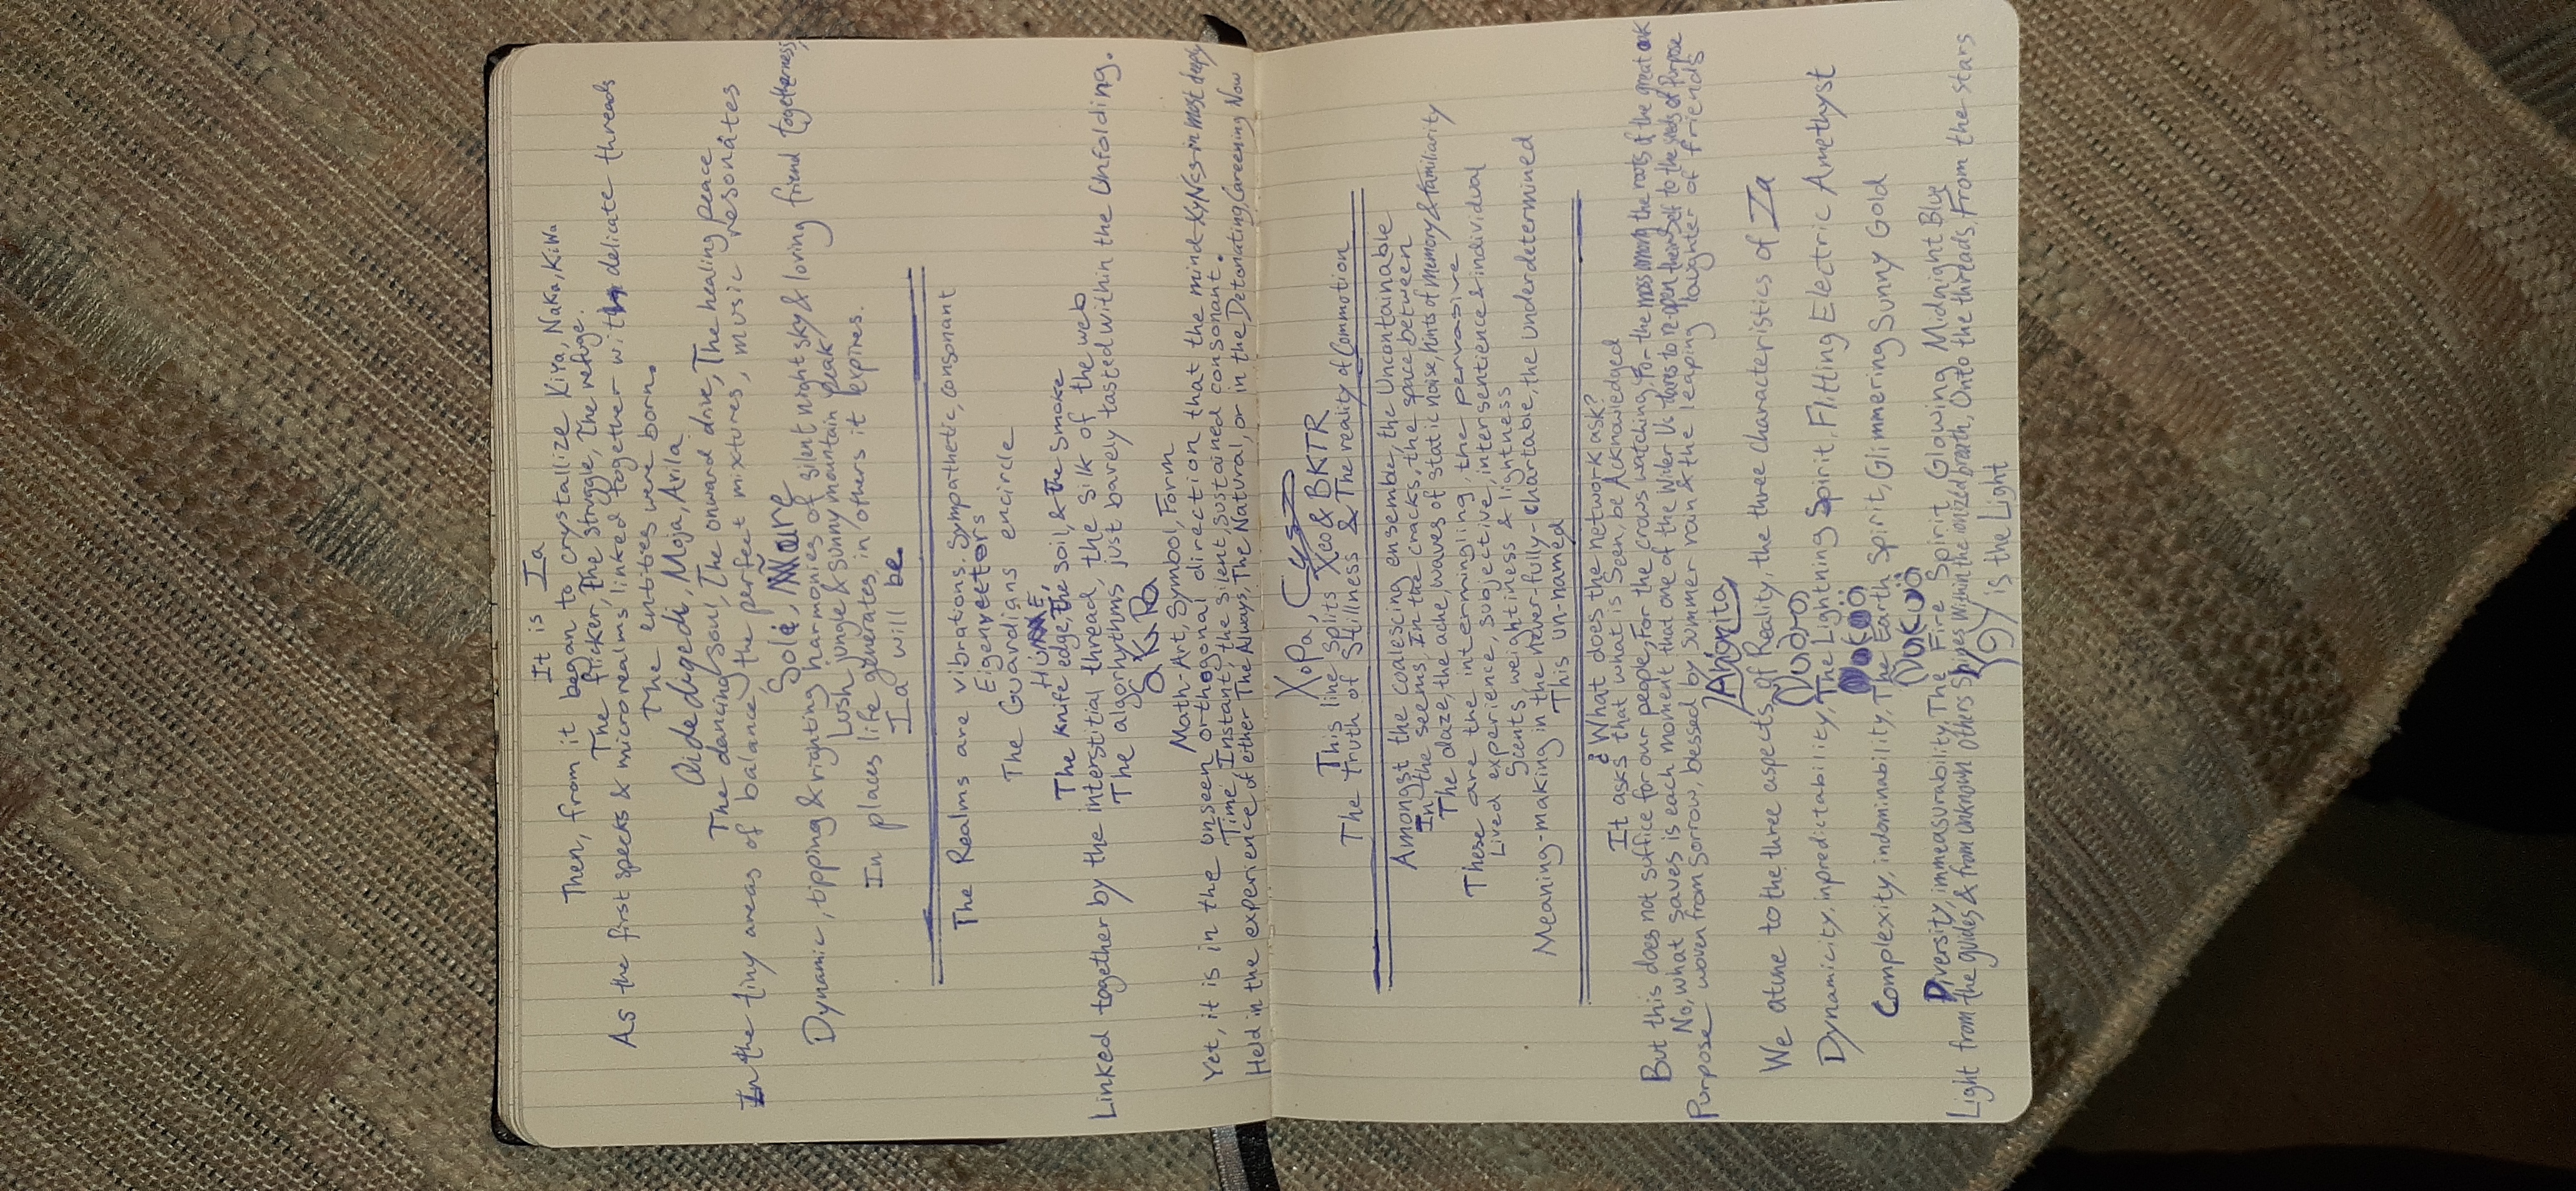 It is Ia
Then, from it began to crystallize Kiya, Naka, KiWa
The flicker, The struggle, The refuge.
As the first specks & microrealms linked together with delicate threads
The entities were born.
Qidedigedi, Moja, Arila
The dancing soul, The onward drive, The healing peace
In the tiny areas of balance, the perfect mixtures, music resonates
Solé,
Dynamic, tipping & righting harmonies of silent night sky & loving friend togetherness,
Lush jungle & sunny mountain peak
In places life generates, in others it expires.
Ia will be.
The Realms are vibrations. Sympathetic, consonant
Eigenvectors
The Guardians encircle
The Knife edge, The Soil, & The Smoke
Linked together by the interstitial thread, the silk of the web
The algorhythms just barely tasted within the Unfolding.
Math-Art, Symbol, Form
Yet, it is in the unseen orthogonal direction that the mind-XyNcs-in most deeply
Time, Instant, the silent, sustained consonant.
Held in the experience of either The Always, The Natural, or in the Detonating, Careening Now
XoPa,
This line splits Xeo & BKTR
The truth of Stillness & The reality of Commotion
Amongst the coalescing ensemble, the Uncontainable
In the seems, In the cracks, the space between
The daze, the ache, waves of static noise, hints of memory & familiarity
These are the intermingling, the pervasive
Lived experience, subjective, intersentience & individual
Scents, weightiness & lightness
Meaning-making in the never-fully-chartable, the underdetermined
This un-named
¿What does the network ask?
It asks that what is Seen, be Acknowledged
But this does not suffice for our people, For the crows watching, For the moss among the roots of the great oak
No, what saves is each moment that one of the Wider Us dares to re-open theirself to the seeds of Purpose
Purpose woven from sorrow, blessed by summer rain & the leaping laughter of friends
We atune to the three aspects of Reality, the three characteristics of Ia
Dynamicity, inpredictability, The Lightning Spirit, Flitting Electric Amethyst
Complexity, indominability, The Earth Spirit, Glimmering Sunny Gold
Diversity, immeasurability, The Fire Spirit, Glowing Midnight Blue
Light from the guides & from unknown others Shines Within the ionized breath, Onto the threads, From the stars
is the Light